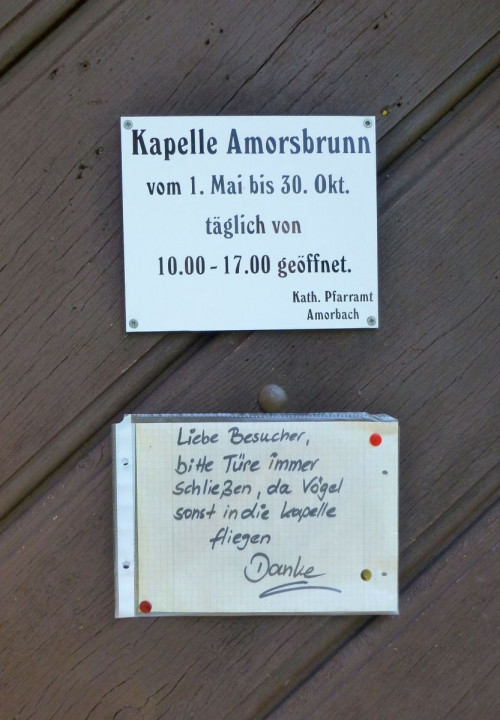 Kapelle Amorsbrunn
vom 1. Mai bis 30. Okt.
täglich von
10.00 - 17.00 geöffnet.
Kath. Pfarramt
Amorbach
Liebe Besucher,
bitte Türe immer
schließen, da Vögel
sonst in die Kapelle
fliegen
Danke